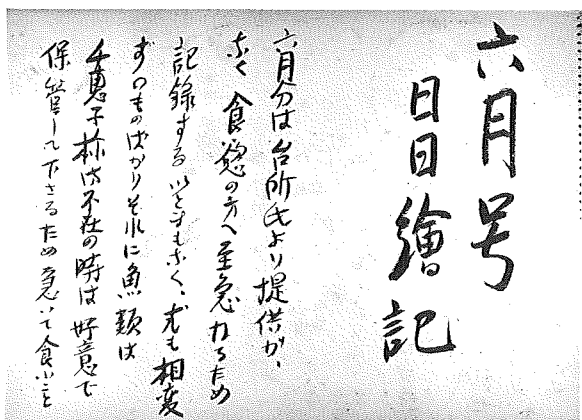 六月号
日日繪記
六月分は台所氏より提供が、
なく食慾の方へ至急なるため
記録するいとまもなく、尤も相変
ずのものばかりそれに魚類は
千恵子様は不在の時は好意で
保管して下さるため急いで食ふこと